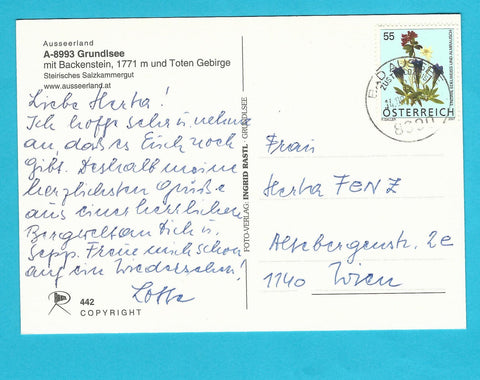 Ausseerland
A-8993 Grundlsee
mit Backenstein, 1771 m und Toten Gebirge
Steirisches Salzkammergut
www.ausseerland.at
Liebe Herta!
Ich hoffe sehr u. nehme
an, daß es Euch noch
gibt. Deshalb meine
herzlichsten Grüße
aus einer herrlichen
Bergwelt an Dich u.
Sepp. Freue mich schon
auf ein Wiedersehen!
Lotte
442
COPYRIGHT
FOTO-VERLAG: INGRID RASTL · GRUNDLSEE
55
ÖSTERREICH
BAD AUSSEE
8990
Frau
Herta FENZ
2e
1140 Wien